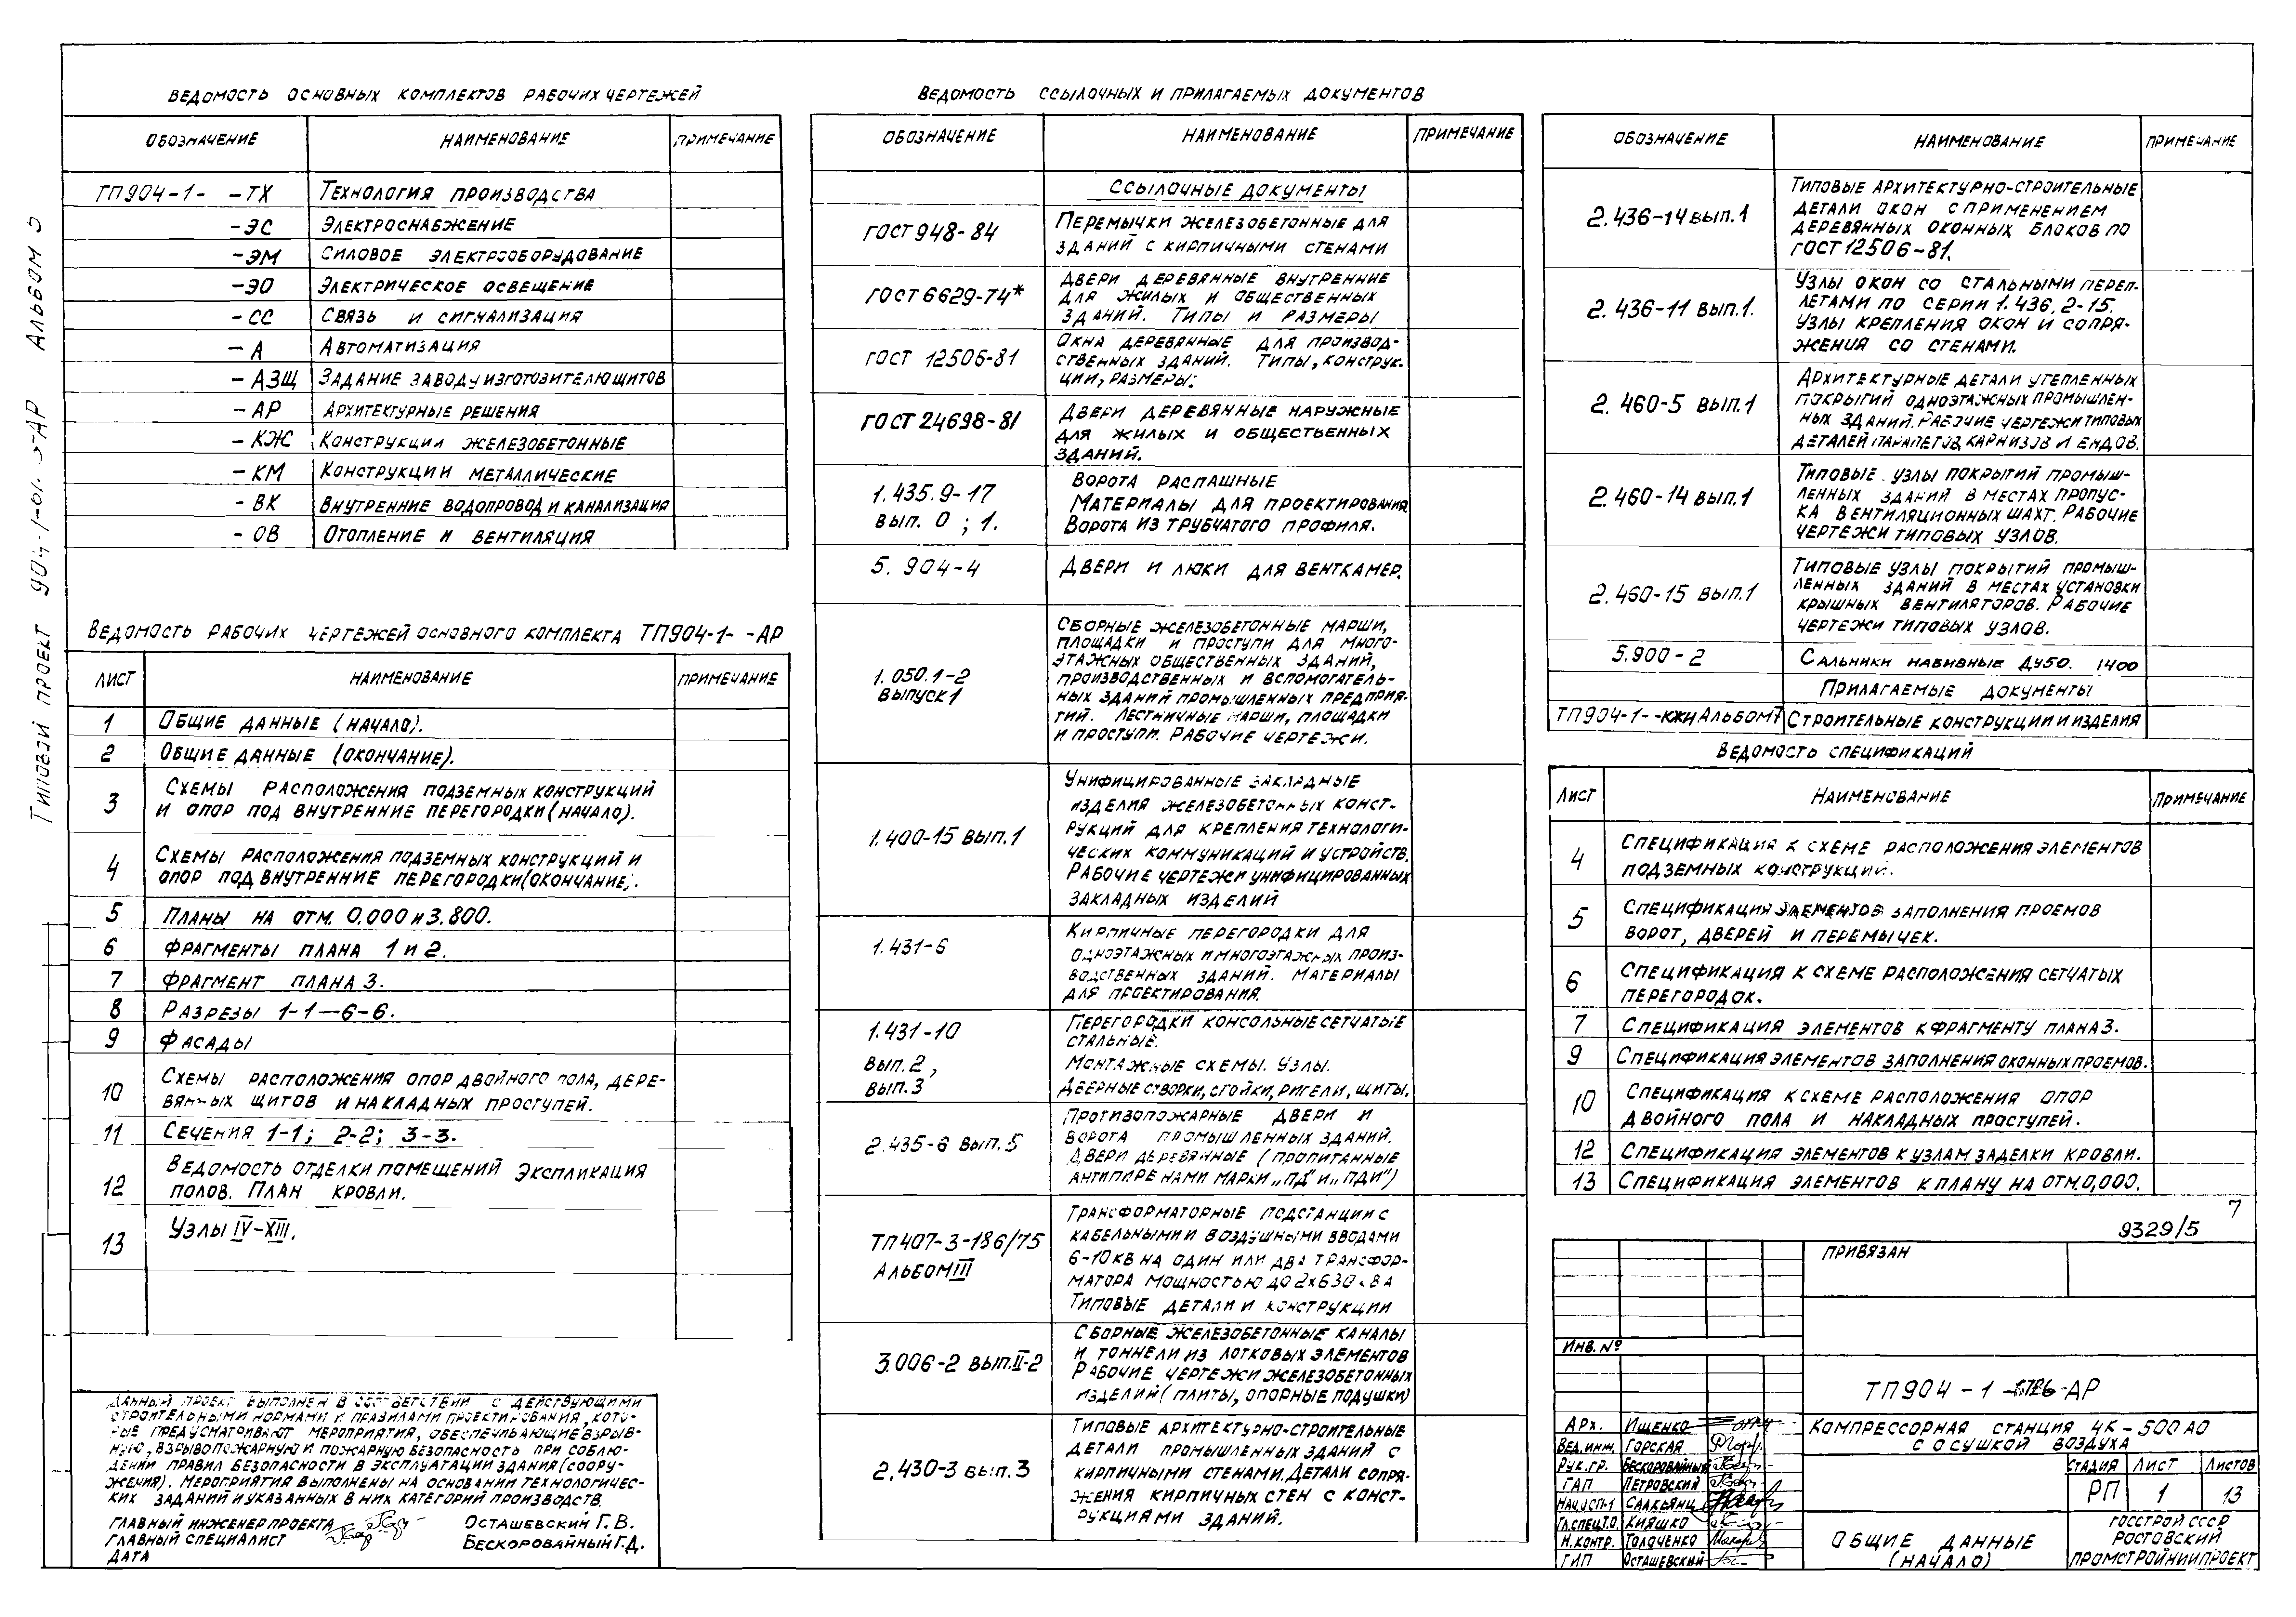 Типовой проект 904-1-01. -АР Альбом
Ведомость основных комплектов рабочих чертежей
Обозначение Наименование Примечание
ТП904-1- -ТХ Технология производства
-ЭС Электроснабжение
-ЭМ Силовое электрооборудование
-ЭО Электрическое освещение
-СС Связь и сигнализация
-А Автоматизация
-АЗЩ Задание заводу изготовителю щитов
-АР Архитектурные решения
-КЖ Конструкции железобетонные
-КМ Конструкции металлические
-ВК Внутренние водопровод и канализация
-ОВ Отопление и вентиляция
Ведомость рабочих чертежей основного комплекта ТП904-1- -АР
Лист Наименование Примечание
1 Общие данные (начало).
2 Общие данные (окончание).
3 Схемы расположения подземных конструкций
и опор под внутренние перегородки (начало).
4 Схемы расположения подземных конструкций и
опор под внутренние перегородки (окончание).
5 Планы на отм. 0.000 и 3.800.
6 Фрагменты плана 1 и 2.
7 Фрагмент плана 3.
8 Разрезы 1-1—6-6.
9 Фасады
10 Схемы расположения опор двойного пола, дере-
вянных щитов и накладных проступей.
11 Сечения 1-1; 2-2; 3-3.
12 Ведомость отделки помещений Экспликация
полов. План кровли.
13 Узлы IV-XIII.
Данный проект выполнен в соответствии с действующими
строительными нормами и правилами проектирования, кото-
рые предусматривают мероприятия, обеспечивающие взрыв-
ную, взрывопожарную и пожарную безопасность при соблю-
дении правил безопасности в эксплуатации здания (соору-
жения). Мероприятия выполнены на основании технологичес-
ких заданий и указанных в них категорий производств.
Главный инженер проекта Осташевский Г.В.
Главный специалист Бескоровайный Г.Д.
Дата
Ведомость ссылочных и прилагаемых документов
Обозначение Наименование Примечание
Ссылочные документы
ГОСТ 948-84 Перемычки железобетонные для
зданий с кирпичными стенами
ГОСТ 6629-74* Двери деревянные внутренние
для жилых и общественных
зданий. Типы и размеры
ГОСТ 12506-81 Окна деревянные для производ-
ственных зданий. Типы, конструк-
ции, размеры.
ГОСТ 24698-81 Двери деревянные наружные
для жилых и общественных
зданий.
1.435.9-17 Ворота распашные
вып. 0; 1. Материалы для проектирования
Ворота из трубчатого профиля.
5. 904-4 Двери и люки для венткамер.
1.050.1-2 Сборные железобетонные марши,
выпуск 1 площадки и проступи для много-
этажных общественных зданий,
производственных и вспомогатель-
ных зданий промышленных предприя-
тий. Лестничные марши, площадки
и проступи. Рабочие чертежи.
1.400-15 вып.1 Унифицированные закладные
изделия железобетонных конст-
рукций для крепления технологи-
ческих коммуникаций и устройств.
Рабочие чертежи унифицированных
закладных изделий
1.431-6 Кирпичные перегородки для
одноэтажных и многоэтажных произ-
водственных зданий. Материалы
для проектирования.
1.431-10 Перегородки консольные сетчатые
стальные.
вып. 2, Монтажные схемы. Узлы.
вып.3 Дверные створки, стойки, ригели, щиты.
2.435-6 вып.5 Противопожарные двери и
ворота промышленных зданий.
Двери деревянные (пропитанные
антипиренами марки „ПД" и „ПДИ")
ТП407-3-186/75 Трансформаторные подстанции с
Альбом III кабельными и воздушными вводами
6-10кВ на один или два трансфор-
матора мощностью до 2х630 кВА
Типовые детали и конструкции
3.006-2 вып.II-2 Сборные железобетонные каналы
и тоннели из лотковых элементов
Рабочие чертежи железобетонных
изделий (плиты, опорные подушки)
2.430-3 вып.3 Типовые архитектурно-строительные
детали промышленных зданий с
кирпичными стенами. Детали сопря-
жения кирпичных стен с конст-
рукциями зданий.
Обозначение Наименование Примечание
2.436-14 вып.1 Типовые архитектурно-строительные
детали окон с применением
деревянных оконных блоков по
ГОСТ 12506-81.
2.436-11 вып.1. Узлы окон со стальными переп-
летами по серии 1.436.2-15.
Узлы крепления окон и сопря-
жения со стенами.
2.460-5 вып.1 Архитектурные детали утепленных
покрытий одноэтажных промышлен-
ных зданий. Рабочие чертежи типовых
деталей парапетов, карнизов и ендов.
2.460-14 вып.1 Типовые узлы покрытий промыш-
ленных зданий в местах пропус-
ка вентиляционных шахт. Рабочие
чертежи типовых узлов.
2.460-15 вып.1 Типовые узлы покрытий промыш-
ленных зданий в местах установки
крышных вентиляторов. Рабочие
чертежи типовых узлов.
5.900-2 Сальники набивные Ду50. 1400
Прилагаемые документы
ТП904-1- -КЖИ Альбом 7 Строительные конструкции и изделия
Ведомость спецификаций
Лист Наименование Примечание
4 Спецификация к схеме расположения элементов
подземных конструкций.
5 Спецификация элементов заполнения проемов
ворот, дверей и перемычек.
6 Спецификация к схеме расположения сетчатых
перегородок.
7 Спецификация элементов к фрагменту плана 3.
9 Спецификация элементов заполнения оконных проемов.
10 Спецификация к схеме расположения опор
двойного пола и накладных проступей.
12 Спецификация элементов к узлам заделки кровли.
13 Спецификация элементов к плану на отм.0,000.
7
9329/5
Привязан
Инв. №
ТП904-1- -АР
Арх. Ищенко
Вед.инж. Горская
Рук.гр. Бескоровайный
ГАП Петровский
Нач.ОСП-1 Саакьянц
Гл.спец.Т.О. Кияшко
Н.контр. Толоченко
ГИП Осташевский
Компрессорная станция 4К-500АО
с осушкой воздуха
Стадия Лист Листов
РП 1 13
Общие данные
(начало)
Госстрой СССР
Ростовский
Промстройниипроект